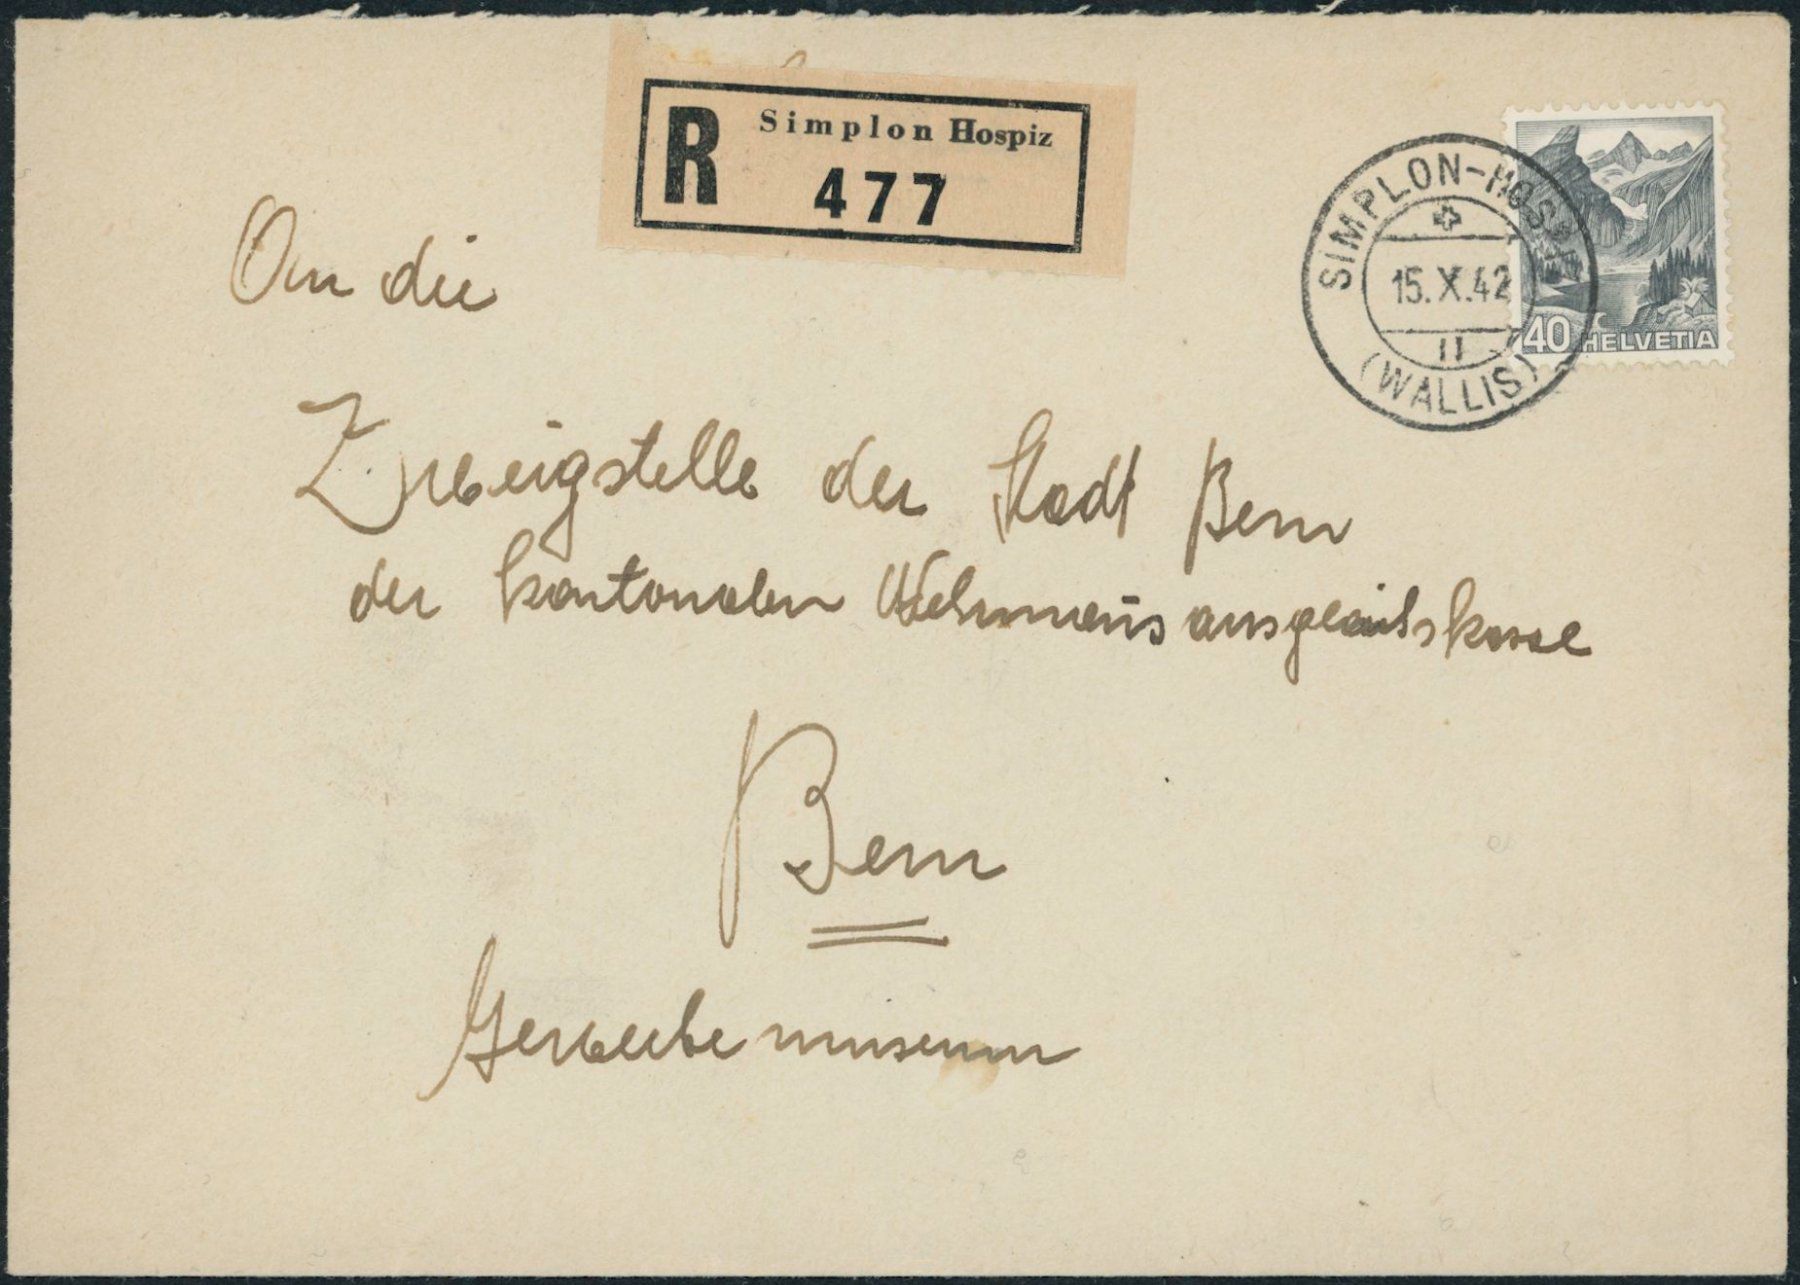 R Simplon Hospiz
477
SIMPLON-HOSPIZ
15.X.42
11
(WALLIS)
40 HELVETIA
An die
Zweigstelle der Stadt Bern
der kantonalen Wehrmannsausgleichskasse
Bern
Gewerbemuseum